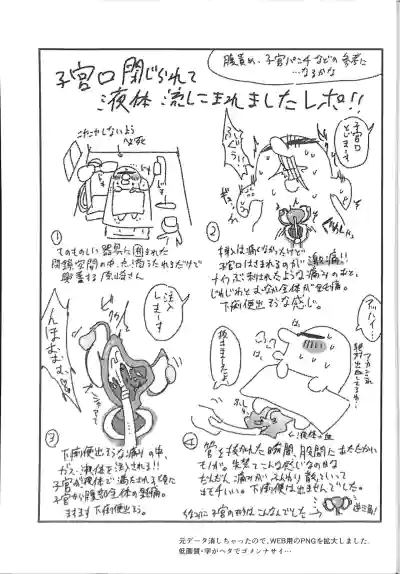 子宮口閉じられて
液体流しこまれましたレポ!!
腹責め、子宮パンチなどの参考に
…なるかな
これでしないよう
必死
子宮口
とじます
ふぐぅ!!
①
ものものしい器具に囲まれた
閉鎖空間の中、点滴うたれるだけで
興奮する
②
挿入は痛くなかったけど
子宮口はさまれるのが激痛!!
ナイフで刺されたような痛みのあと、
じわじわとおなか全体が鈍痛。
下痢便出そうな感じ。
注入
します
んほおむむむ
③
下痢便出そうな痛みの中、
ガス・液体を注入される!!
子宮が液体で満たされて後に
子宮から腹部全体の鈍痛。
ますます下痢出そう。
アッハイ…
抜きました
④
管を抜かれた瞬間、股間にあたたかい
ものが。失禁ってこんな感じなのかな
だんだん痛みが
きもちいい。下痢便は出ませんでした。
こんなでした
逆三角!
元データ消しちゃったので、WEB用のPNGを拡大しました。
低画質・字がヘタでゴメンナサイ…